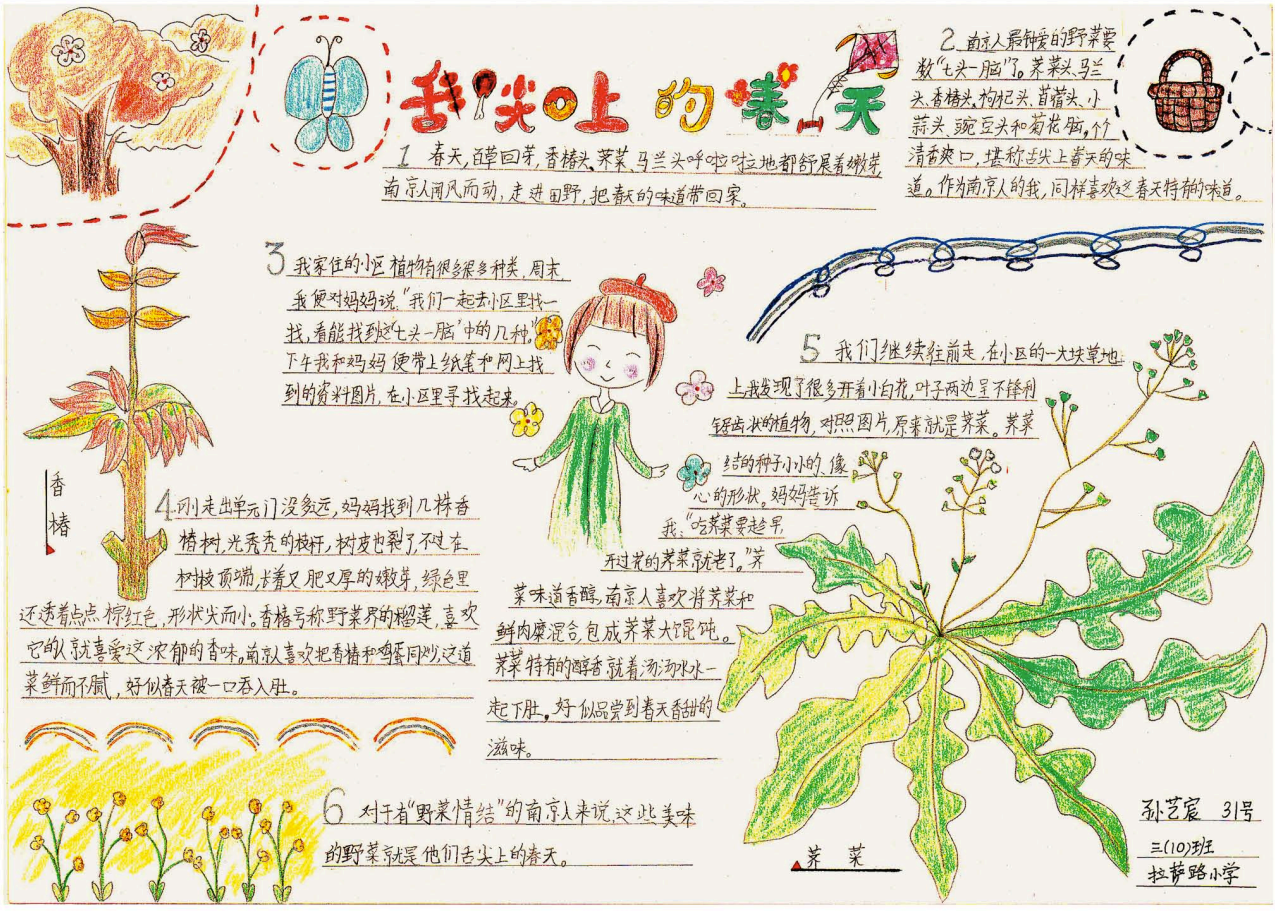 舌尖上的春天
1 春天,百草回芽,香椿头、荠菜、马兰头呼啦啦地都舒展着嫩芽,
南京人闻风而动,走进田野,把春天的味道带回家。
2 南京人最钟爱的野菜要
数“七头一脑”了。荠菜头、马兰
头、香椿头、枸杞头、苜蓿头、小
蒜头、豌豆头和菊花脑,个个
清香爽口,堪称舌尖上春天的味
道。作为南京人的我,同样喜欢这春天特有的味道。
3 我家住的小区植物有很多很多种类,周末
我便对妈妈说:“我们一起去小区里找一
找,看能找到这‘七头一脑’中的几种。”
下午我和妈妈便带上纸笔和网上找
到的资料图片,在小区里寻找起来。
香椿
4 刚走出单元门没多远,妈妈找到几株香
椿树,光秃秃的枝杆,树皮也裂了,不过在
树枝顶端,长着又肥又厚的嫩芽,绿色里
还透着点点棕红色,形状尖而小。香椿号称野菜界的榴莲,喜欢
它的人就喜爱这浓郁的香味。南京人喜欢把香椿和鸡蛋同炒,这道
菜鲜而不腻,好似春天被一口吞入肚。
5 我们继续往前走,在小区的一大块草地
上我发现了很多开着小白花,叶子两边呈不锋利
锯齿状的植物,对照图片,原来就是荠菜。荠菜
结的种子小小的、像
心的形状。妈妈告诉
我:“吃荠菜要趁早,
开过花的荠菜就老了。”荠
菜味道香醇,南京人喜欢将荠菜和
鲜肉糜混合,包成荠菜大馄饨。
荠菜特有的醇香就着汤汤水水一
起下肚。好似品尝到春天香甜的
滋味。
6 对于有“野菜情结”的南京人来说,这些美味
的野菜就是他们舌尖上的春天。
荠菜
孙艺宸 31号
三(10)班
拉萨路小学